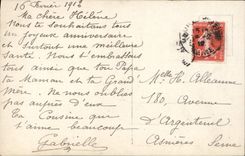 16 Février 1912
Ma chère Hélène
Nous te souhaitons tous
un joyeux anniversaire
et surtout une meilleure
Santé. Nous t'embrassons
tous ainsi que ton Papa
ta Maman et ta Grand
Mère. Ne nous oublies
pas auprès d'eux
Ta Cousine qui
t'aime beaucoup
Gabrielle
Melle H. Alleaume
180, Avenue
d'Argenteuil
Asnières Seine